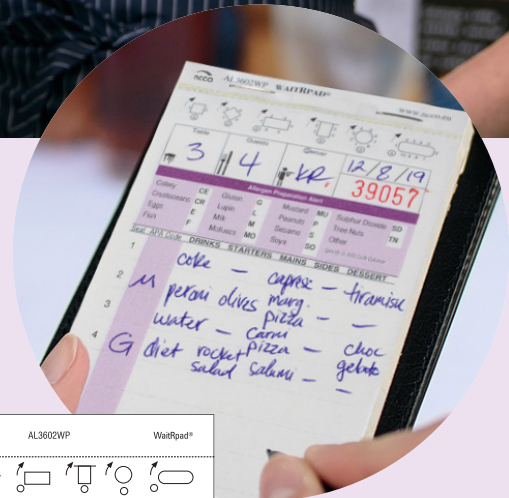 ncco AL3602WP WAITRPAD® www.ncco.eu
Table Guests Server
3 4 KR. 12/8/19
39057
Allergen Preparation Alert
Celery CE Gluten G Mustard MU Sulphur Dioxide SD
Crustaceans CR Lupin L Peanuts P Tree Nuts TN
Eggs E Milk M Sesame S Other
Fish F Molluscs MO Soya SO
Seat APA Code DRINKS STARTERS MAINS SIDES DESSERT
1 coke – caprese – tiramisu
2 M peroni olives marg. – –
pizza
3 water – carni – choc
pizza gelato
4 G diet rocket salumi – –
salad
AL3602WP WaitRpad®